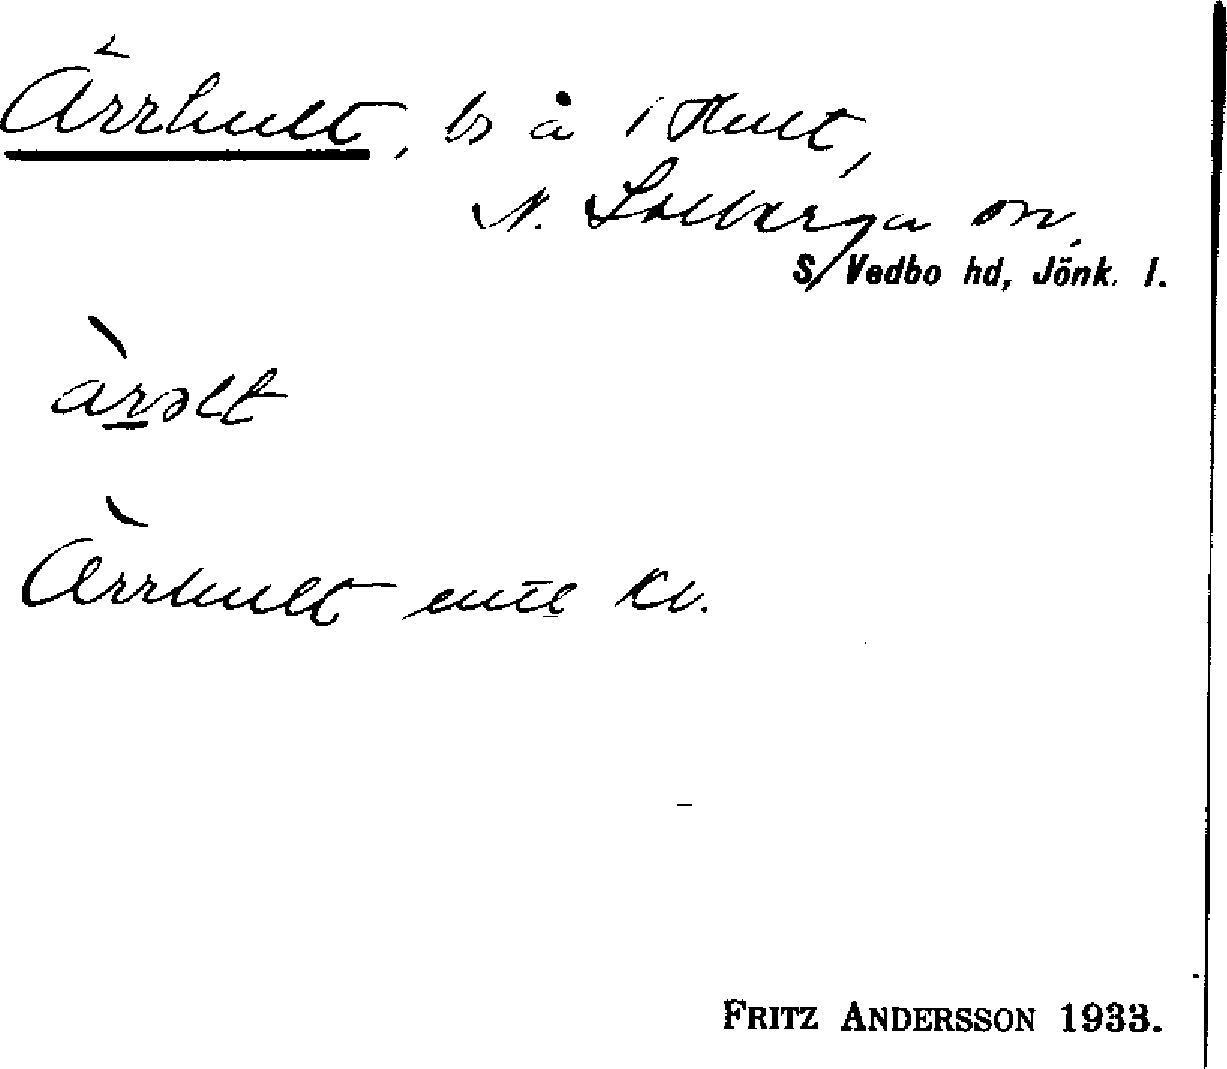 Àrrhult, ls å 1 Hult,
N. Solberga sn,
S. Vedbo hd, Jönk. l.
àrəlt
Àrrhult
FRITZ ANDERSSON 1933.